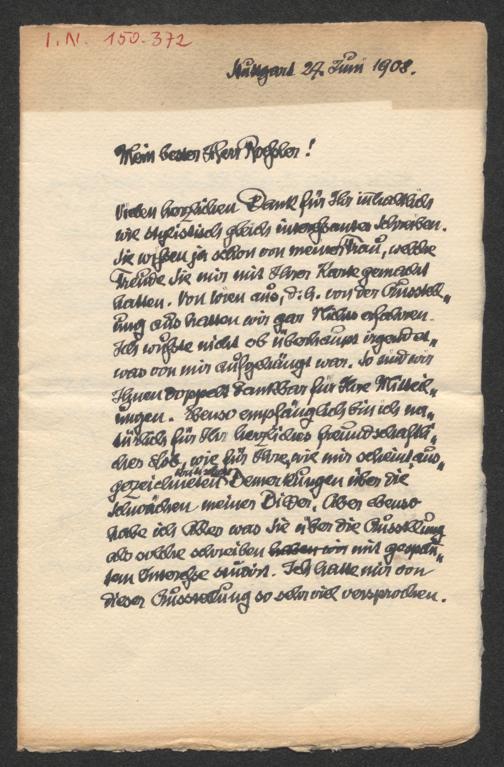 I.N. 150.372
Stuttgart 27. Juni 1908.
Mein bester Herr Roeßler!
Vielen herzlichen Dank für Ihr inhaltlich
wie stylistisch gleich interessantes Schreiben.
Sie wißen ja schon von meiner Frau, welche
Freude Sie mir mit Ihrer Karte gemacht
hatten. Von Wien aus, d. h. von der Ausstell„
ung aus hatten wir gar Nichts erfahren.
Ich wußte nicht ob überhaupt irgend et„
was von mir aufgehängt war. So sind wir
Ihnen doppelt dankbar für Ihre Mitteil„
ungen. Ebenso empfänglich bin ich na„
türlich für Ihr herzliches freundschaftli„
ches Lob, wie für Ihre, wie mir scheint aus„
gezeichneten kritischen Bemerkungen über die
Schwächen meiner Bilder. Aber ebenso
habe ich Alles was Sie über die Ausstellung
als solche schreiben haben wir mit gespann„
tem Interesse studirt. Ich hatte mir von
dieser Ausstellung so sehr viel versprochen.